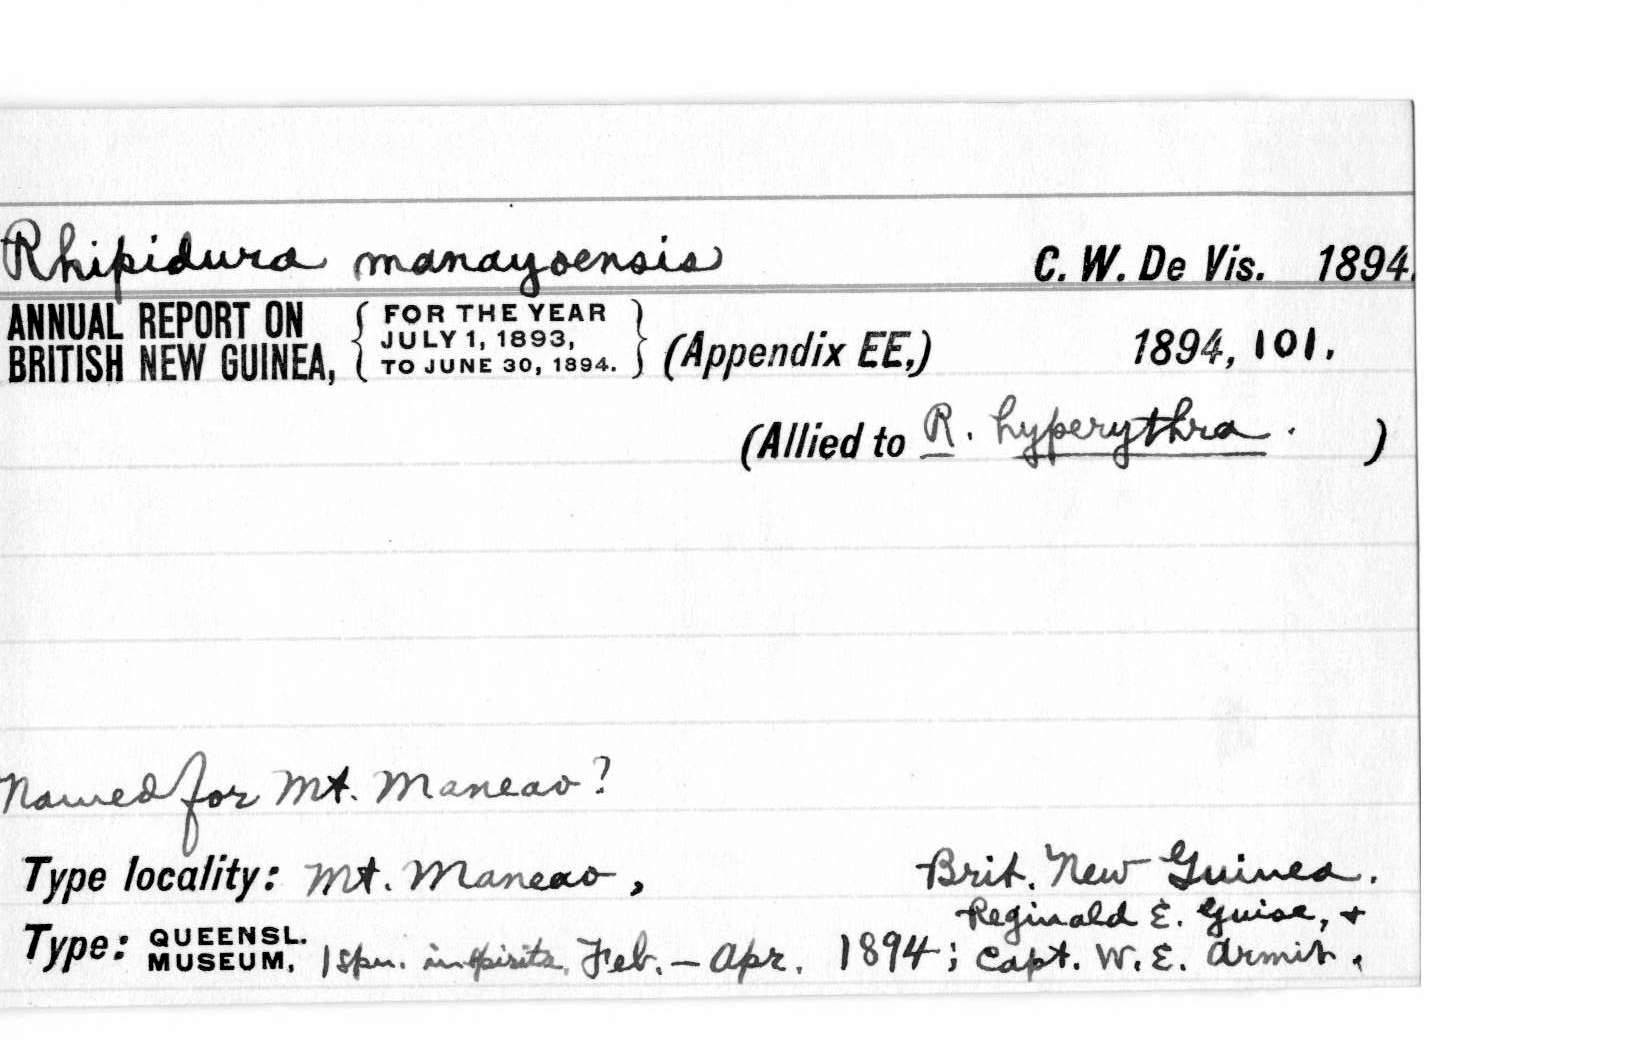 Rhipidura manayoensis C. W. De Vis. 1894.
ANNUAL REPORT ON { FOR THE YEAR
BRITISH NEW GUINEA, JULY 1, 1893, } (Appendix EE,) 1894, 101.
TO JUNE 30, 1894.
(Allied to R. hyperythra. )
Named for Mt. Maneao?
Type locality: Mt. Maneao, Brit. New Guinea.
Reginald E. Guise, +
Type: QUEENSL. MUSEUM, 1 spm. in spirits, Feb. – Apr. 1894; Capt. W. E. Armit.